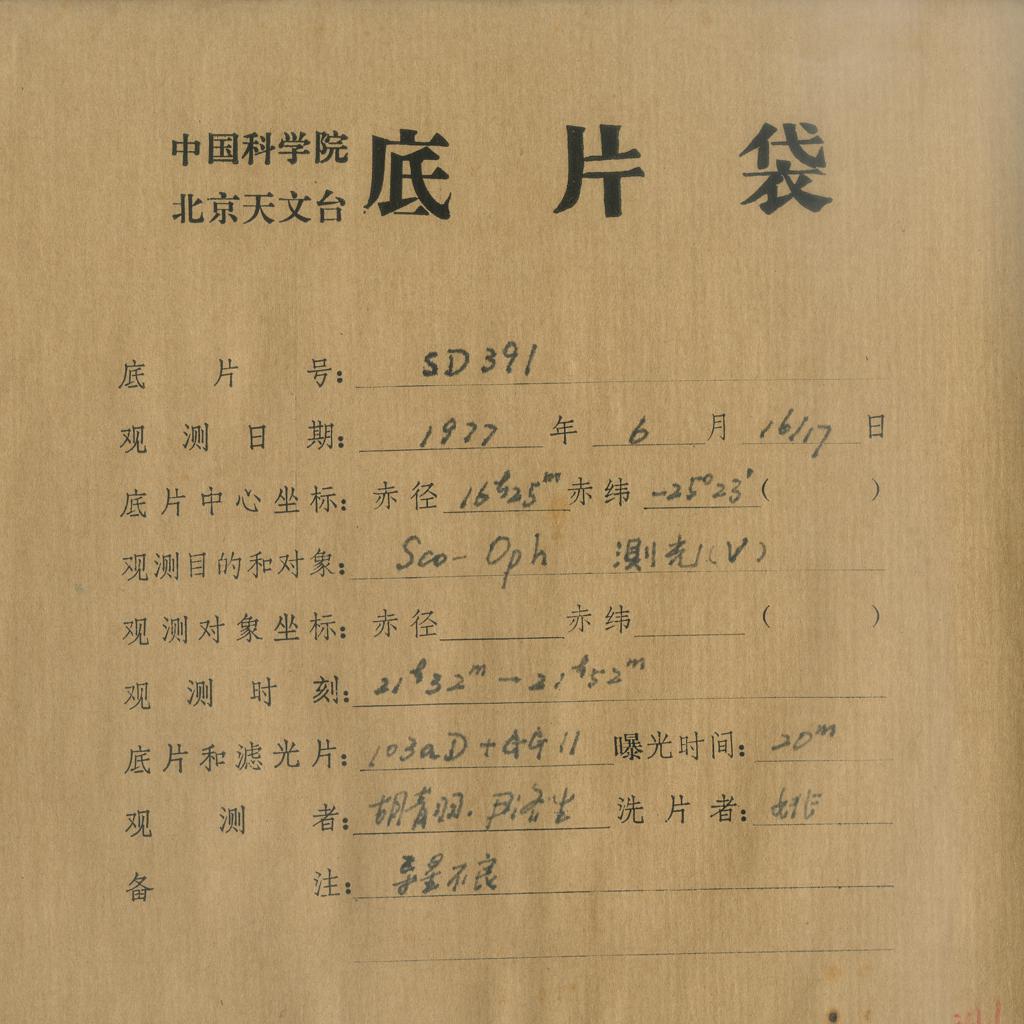 中国科学院
北京天文台
底片袋
底片号: SD391
观测日期: 1977年6月16/17日
底片中心坐标: 赤径 16h25m 赤纬 -25°23′ ( )
观测目的和对象: Sco-Oph 测光(V)
观测对象坐标: 赤径 赤纬 ( )
观测时刻: 21h32m-21h52m
底片和滤光片: 103aD+GG11 曝光时间: 20m
观测者: 胡青 洗片者: 姚
备注: 导星不良